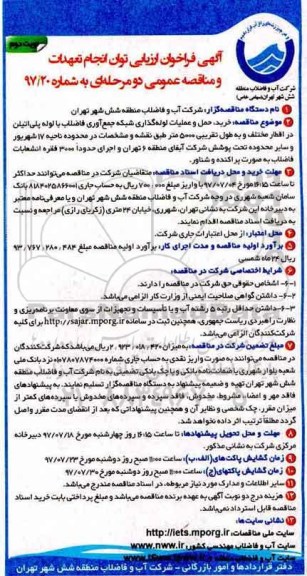 نوبت دوم
آگهی فراخوان ارزیابی توان انجام تعهدات
و مناقصه عمومی دو مرحله‌ای به شماره ۹۷/۲۰
شرکت آب و فاضلاب منطقه
شش شهر تهران (سهامی خاص)
۱ نام دستگاه مناقصه‌گزار: شرکت آب و فاضلاب منطقه شش شهر تهران
۲ موضوع مناقصه: خرید، حمل و عملیات لوله‌گذاری شبکه جمع‌آوری فاضلاب با لوله پلی‌اتیلن
در اقطار مختلف و به طول تقریبی ۵۰۰۰۰ متر طبق نقشه و مشخصات در محدوده ناحیه ۱۷ شهریور
و سایر محدوده تحت پوشش شرکت آبفای منطقه ۶ تهران و اجرای حدوداً ۳۰۰۰ فقره انشعابات
فاضلاب به صورت پراکنده و شناور.
۳ مهلت خرید و محل دریافت اسناد مناقصه: متقاضیان شرکت در مناقصه می‌توانند حداکثر
تا ساعت ۱۶:۱۵ مورخ ۹۷/۰۷/۰۴ با واریز مبلغ ۷۰۰/۰۰۰ ریال به حساب جاری ۸۱۸۴۰۲۵۸۶۶۰۰۱ بانک
سامان شعبه شهری در وجه شرکت آب و فاضلاب منطقه شش شهر تهران و با معرفی‌نامه معتبر
به دبیرخانه این شرکت به نشانی تهران، شهرری، خیابان ۲۴ متری (زکریای رازی) مراجعه و نسبت
به دریافت اسناد مناقصه اقدام نمایند.
۴ محل اعتبار: از محل اعتبارات جاری شرکت.
۵ برآورد اولیه مناقصه و مدت اجرای کار: برآورد اولیه مناقصه مبلغ ۹۳/۷۶۷/۲۸۰/۴۸۶
ریال ۲۴ ماه شمسی
۶ شرایط اختصاصی شرکت در مناقصه:
۶-۱- اشخاص حقوقی حق شرکت در مناقصه را دارند.
۶-۲- داشتن گواهی صلاحیت ایمنی از وزارت کار الزامی می‌باشد.
۶-۳- داشتن حداقل رتبه ۵ رشته آب و یا تأسیسات و تجهیزات از سوی معاونت برنامه‌ریزی و
نظارت راهبردی ریاست جمهوری، همچنین ثبت در سامانه http://sajar.mporg.ir برای کلیه
شرکت‌کنندگان الزامی می‌باشد.
۷ مبلغ تضمین شرکت در مناقصه: به میزان ۲/۹۲۳/۰۱۸/۴۲۰ ریال می‌باشد که شرکت‌کنندگان
در مناقصه می‌توانند به صورت واریز نقدی به حساب جاری شماره ۰۱۰۷۸۰۷۸۷۴۰۰۰ نزد بانک ملی
شعبه بلوار شهرری یا ضمانتنامه بانکی و یا چک بانکی تضمینی به نام شرکت آب و فاضلاب منطقه
شش شهر تهران تهیه و ضمیمه پیشنهاد به دستگاه مناقصه‌گزار تسلیم نمایند. به پیشنهادهای
فاقد مهر و امضا، مشروط، مخدوش، فاقد سپرده و سپرده‌های مخدوش یا سپرده‌های کمتر از
میزان مقرر، چک شخصی و نظایر آن و همچنین پیشنهاداتی که بعد از انقضای مدت مقرر واصل
گردد مطلقاً ترتیب اثر داده نخواهد شد.
۸ مهلت و محل تحویل پیشنهادها: تا ساعت ۱۶:۱۵ روز چهارشنبه مورخ ۹۷/۰۷/۱۸ دبیرخانه
مرکزی شرکت به نشانی مذکور.
۹ زمان گشایش پاکت‌های (الف-ب): ساعت ۱۱:۰۰ صبح روز دوشنبه مورخ ۹۷/۰۷/۲۳
۱۰ زمان گشایش پاکتهای (ج): ساعت ۱۱:۰۰ صبح روز دوشنبه مورخ ۹۷/۰۷/۳۰
۱۱ سایر اطلاعات و مدارک مورد نیاز مربوطه، در اسناد مناقصه مندرج می‌باشد.
۱۲ هزینه درج دو نوبت آگهی به عهده برنده مناقصه می‌باشد و مبلغ پرداختی بابت خرید اسناد
مناقصه قابل استرداد نمی‌باشد.
۱۳ نشانی سایت‌ها:
سایت ملی مناقصات: http://iets.mporg.ir
سایت آب و فاضلاب مهندسی کشور: www.nww.ir
دفتر قراردادها و امور بازرگانی - شرکت آب و فاضلاب منطقه شش شهر تهران